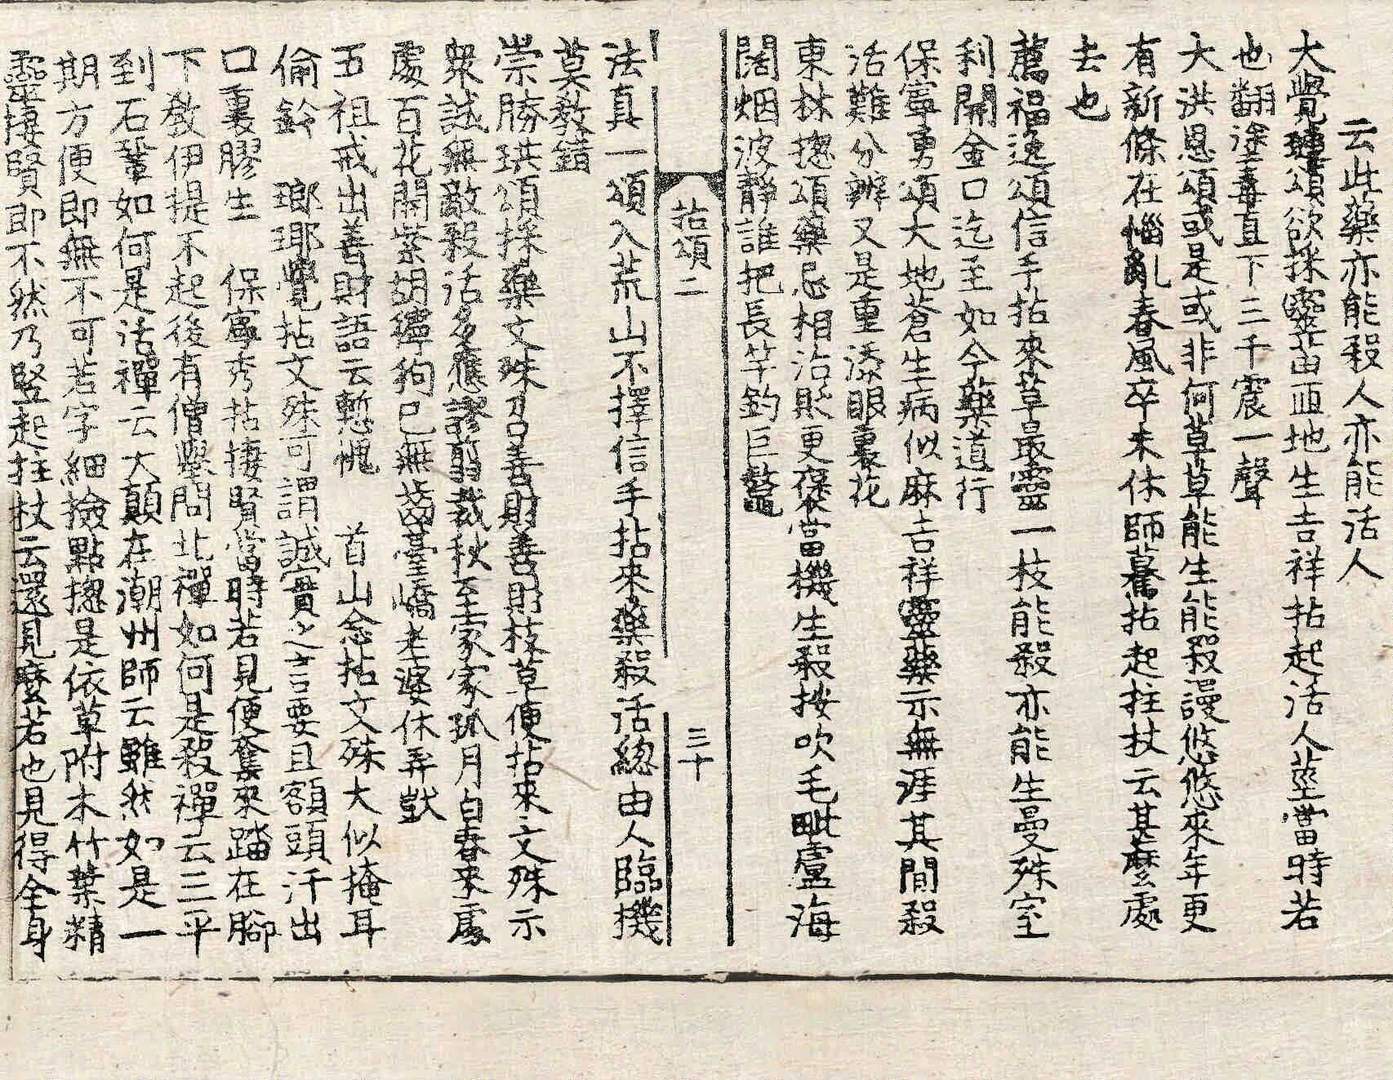 云此藥亦能殺人亦能活人
大覺璉頌欲採靈苗匝地生吉祥拈起活人莖當時若
也翻塗毒直下三千震一聲
大洪恩頌或是或非何草草能生能殺謾悠悠來年更
有新條在惱亂春風卒未休師驀拈起拄杖云甚麽處
去也
薦福逸頌信手拈來草最靈一枝能殺亦能生曼殊室
利開金口迄至如今藥道行
保寧勇頌大地蒼生病似麻吉祥靈藥示無涯其間殺
活難分辨又是重添眼裏花
東林揔頌藥忌相治貶更褒當機生殺按吹毛毗盧海
闊烟波靜誰把長竿釣巨鼇
拈頌二
三十
法真一頌入荒山不擇信手拈來藥殺活緫由人臨機
莫教錯
崇勝珙頌採藥文殊召善財善財枝草便拈來文殊示
衆誠無敵殺活多應謬剪裁秋至家家孤月白春來處
處百花開紫胡獰狗已無齒臺嶠老婆休弄獃
五祖戒出善財語云慙愧 首山念拈文殊大似掩耳
偷鈴 瑯瑘覺拈文殊可謂誠實之言要且額頭汗出
口裏膠生 保寧秀拈捿賢當時若見便奪來踏在脚
下敎伊提不起後有僧擧問北禪如何是殺禪云三平
到石鞏如何是活禪云大顛在潮州師云雖然如是一
期方便即無不可若字細撿點揔是依草附木竹葉精
靈捿賢即不然乃竪起拄杖云還見麽若也見得全身